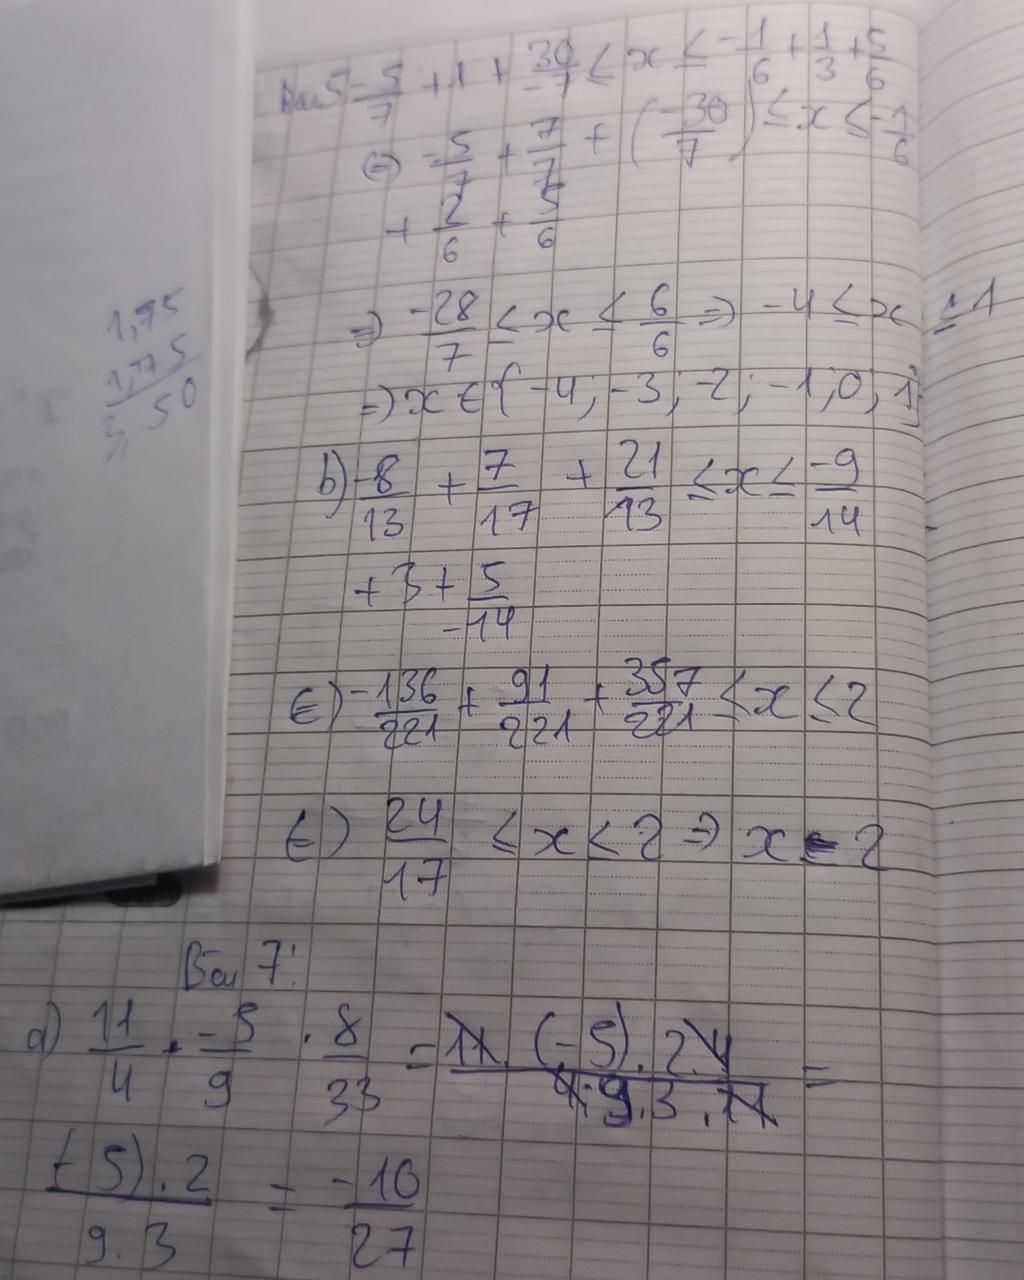 1,75
1,75
3,50
Bài 5 -5/7 + 1 + 30/-7 ≤ x ≤ -1/6 + 1/3 + 5/6
=) -5/7 + 7/7 + (-30/7) ≤ x ≤ -1/6
+ 2/6 + 5/6
=) -28/7 ≤ x ≤ 6/6 =) -4 ≤ x ≤ 1
=) x ∈ { -4; -3; -2; -1; 0; 1}
b) -8/13 + 7/17 + 21/13 ≤ x ≤ -9/14
+ 3 + 5/-14
€) -136/221 + 91/221 + 357/221 ≤ x ≤ 2
€) 24/17 ≤ x ≤ 2 =) x = 2
Bài 7:
a) 11/4 . -5/9 . 8/33 = 11.(-5).2.4/4.9.3.11 =
(-5).2/9.3 = -10/27